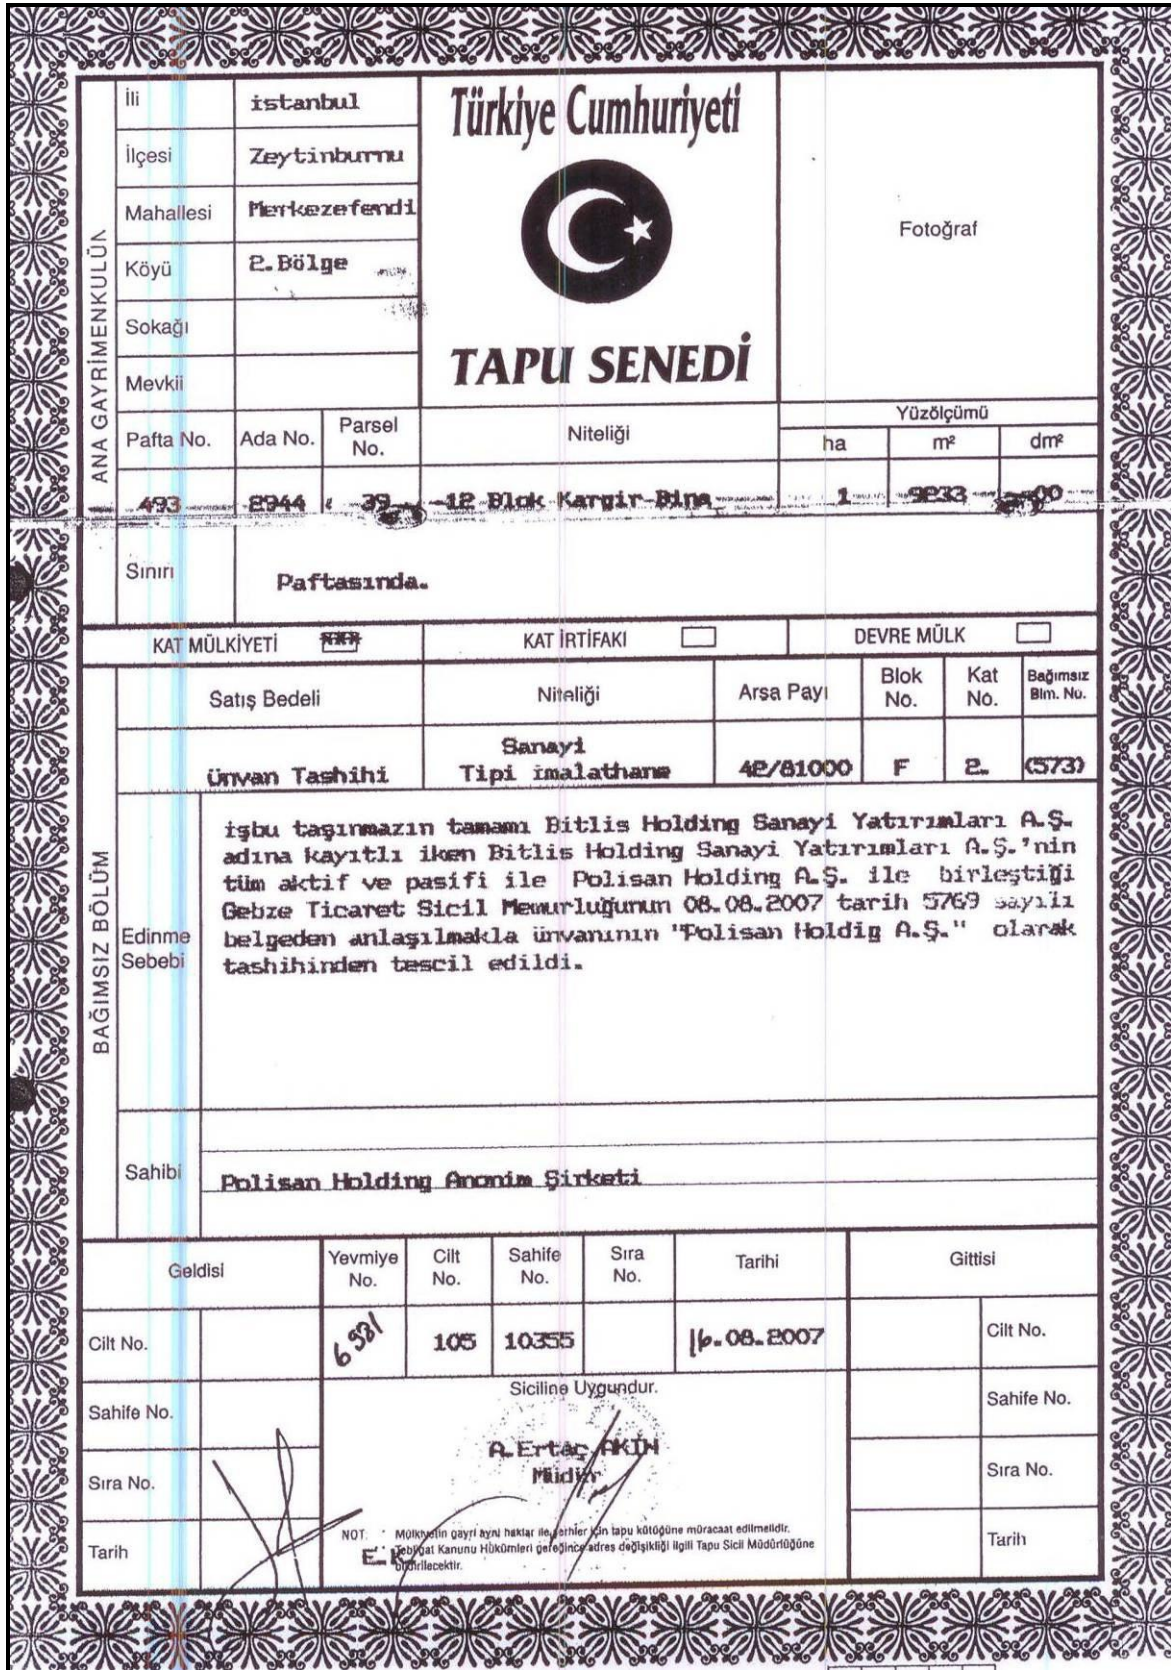 Türkiye Cumhuriyeti
TAPU SENEDİ
Fotoğraf
ANA GAYRİMENKULÜN
İli istanbul
İlçesi Zeytinburnu
Mahallesi Merkezefendi
Köyü 2.Bölge
Sokağı
Mevkii
Pafta No. Ada No. Parsel No. Niteliği Yüzölçümü
ha m² dm²
493 2944 39 -12 Blok Kargir-Bina 1 9233 00
Sınırı Paftasında.
KAT MÜLKİYETİ KAT İRTİFAKI DEVRE MÜLK
BAĞIMSIZ BÖLÜM
Satış Bedeli Niteliği Arsa Payı Blok No. Kat No. Bağımsız Blm. No.
Ünvan Tashihi Sanayi Tipi imalathane 42/81000 F 2. (573)
Edinme Sebebi
işbu taşınmazın tamamı Bitlis Holding Sanayi Yatırımları A.Ş.
adına kayıtlı iken Bitlis Holding Sanayi Yatırımları A.Ş.'nin
tüm aktif ve pasifi ile Polisan Holding A.Ş. ile birleştiği
Gebze Ticaret Sicil Memurluğunun 08.08.2007 tarih 5769 sayılı
belgeden anlaşılmakla ünvanının "Polisan Holdig A.Ş." olarak
tashihinden tescil edildi.
Sahibi Polisan Holding Anonim Şirketi
Geldisi Yevmiye No. Cilt No. Sahife No. Sıra No. Tarihi Gittisi
Cilt No. 6931 105 10355 16.08.2007 Cilt No.
Siciline Uygundur.
Sahife No. Sahife No.
A.Ertaç AKIN
Müdür
Sıra No. Sıra No.
NOT: Mülkiyetin gayri ayni haklar ile şerhler için tapu kütüğüne müracaat edilmelidir.
Tebligat Kanunu Hükümleri gereğince adres değişikliği ilgili Tapu Sicil Müdürlüğüne
bildirilecektir.
E.K
Tarih Tarih